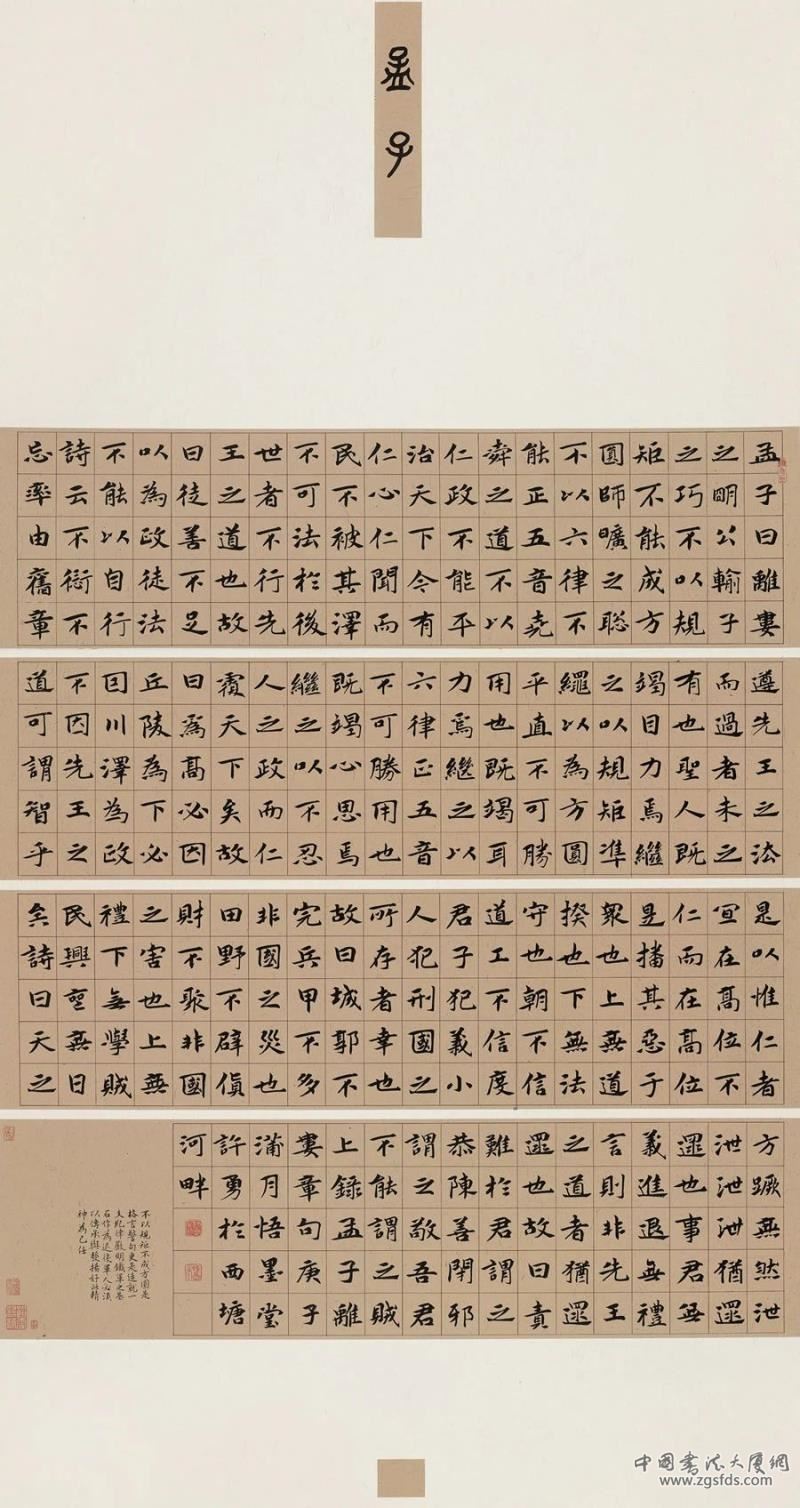 孟子
孟子曰離婁
之明公輸子
之巧不以規
矩不能成方
圓師曠之聰
不以六律不
能正五音堯
舜之道不以
仁政不能平
治天下今有
仁心仁聞而
民不被其澤
不可法於後
世者不行先
王之道也故
曰徒善不足
以為政徒法
不能以自行
詩云不衍不
忘率由舊章
遵先王之法
而過者未之
有也聖人既
竭目力焉繼
之以規矩準
繩以為方圓
平直不可勝
用也既竭耳
力焉繼之以
六律正五音
不可勝用也
既竭心思焉
繼之以不忍
人之政而仁
覆天下矣故
曰為高必因
丘陵為下必
因川澤為政
不因先王之
道可謂智乎
是以惟仁者
宜在高位不
仁而在高位
是播其惡于
眾也上無道
揆也下無法
守也朝不信
道工不信度
君子犯義小
人犯刑國之
所存者幸也
故曰城郭不
完兵甲不多
非國之災也
田野不辟貨
財不聚非國
之害也上無
禮下無學賊
民興喪無日
矣詩曰天之
方蹶無然泄
泄泄泄猶遝
遝也事君無
義進退無禮
言則非先王
之道者猶遝
遝也故曰責
難於君謂之
恭陳善閉邪
謂之敬吾君
不能謂之賊
上錄孟子離
婁章句庚子
蒲月悟墨堂
許勇於西塘
河畔
不以規矩不成方圓是
格言警句更是造就一
支紀律嚴明鐵軍之基
石作為退役軍人必須
以傳承與發揚好此精
神為己任
中国书法大厦網
www.zgsfds.com